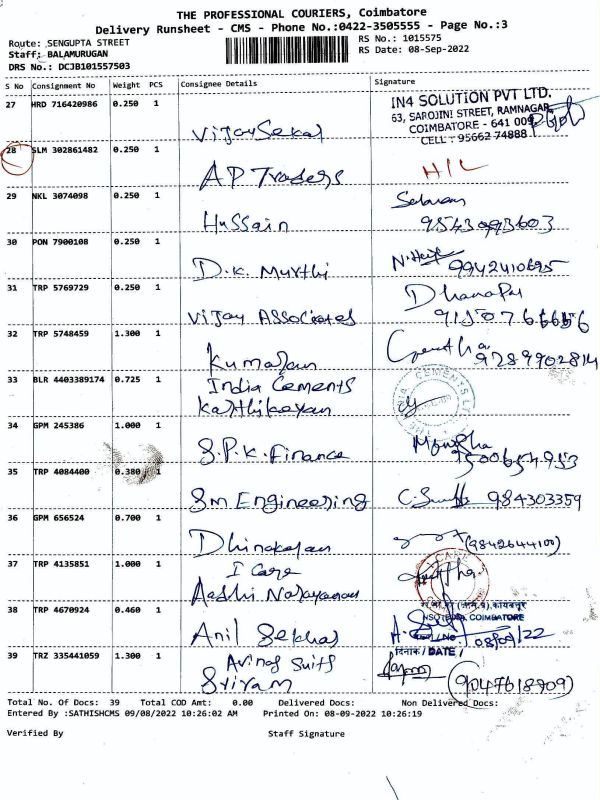 THE PROFESSIONAL COURIERS, Coimbatore
Delivery Runsheet - CMS - Phone No.:0422-3505555 - Page No.:3
Route: SENGUPTA STREET
RS No.: 1015575
Staff: BALAMURUGAN
RS Date: 08-Sep-2022
DRS No.: DCJB101557503
S No Consignment No Weight PCS Consignee Details Signature
27 HRD 716420986 0.250 1
IN4 SOLUTION PVT LTD.
63, SAROJINI STREET, RAMNAGAR,
COIMBATORE - 641 009
CELL : 95662 74888
Vijay Sekar
28 SLM 302861482 0.250 1
AP Traders H/L
29 NKL 3074098 0.250 1
Hussain
30 PON 7900108 0.250 1
D.K. Murthi 9942410695
31 TRP 5769729 0.250 1
Vijay Associates
32 TRP 5748459 1.300 1
Kumaran 9789902814
33 BLR 4403389174 0.725 1
India Cements
Karthikeyan
34 GPM 245386 1.000 1
S.P.K. Finance
35 TRP 4084400 0.380 1
Sm Engineering 984303359
36 GPM 656524 0.700 1
Dhinakaran (9842644100)
37 TRP 4135851 1.000 1
I Care
Aadhi Narayanan
38 TRP 4670924 0.460 1
COIMBATORE
Anil Sekhar 08/09/22
दिनांक / DATE /
39 TRZ 335441059 1.300 1
Avinas Suits
Sriram (9047618909)
Total No. Of Docs: 39 Total COD Amt: 0.00 Delivered Docs: Non Delivered Docs:
Entered By :SATHISHCMS 09/08/2022 10:26:02 AM Printed On: 08-09-2022 10:26:19
Verified By Staff Signature